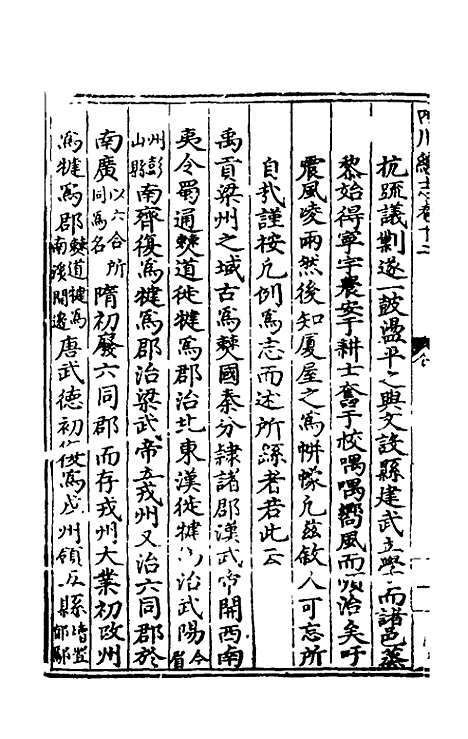 四川總志卷十二
抗疏議剿遂一鼓盪平之與文設縣建武立學而諸邑蒸
黎始得寧宇農安于耕士奮于校喁喁嚮風而順治矣吁
震風凌雨然後知厦屋之為帡幪凡茲敘人可忘所
自哉謹按凡例為志而述所繇者若此云
禹貢梁州之域古為僰國秦分隷諸郡漢武帝開西南
夷令蜀通僰道徙犍為郡治此東漢徙犍治武陽今眉
州彭山縣南齊復為犍為郡治梁武帝立戎州又治六同郡於
南廣以六合所同為名隋初發六同郡而存戎州大業初改州
為犍為郡僰道犍為南溪開邊唐武德初復為戎州領五縣增置郁鄢